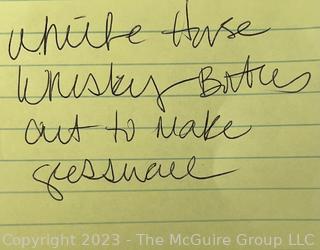 White Horse
Whiskey Bottles
cut to make
glassware
Copyright 2023 - The McGuire Group LLC